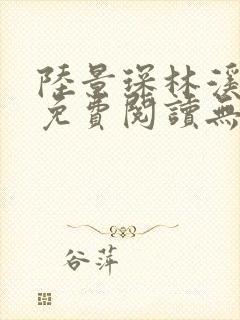 陸景琛林溪
免費閱讀無
谷萍